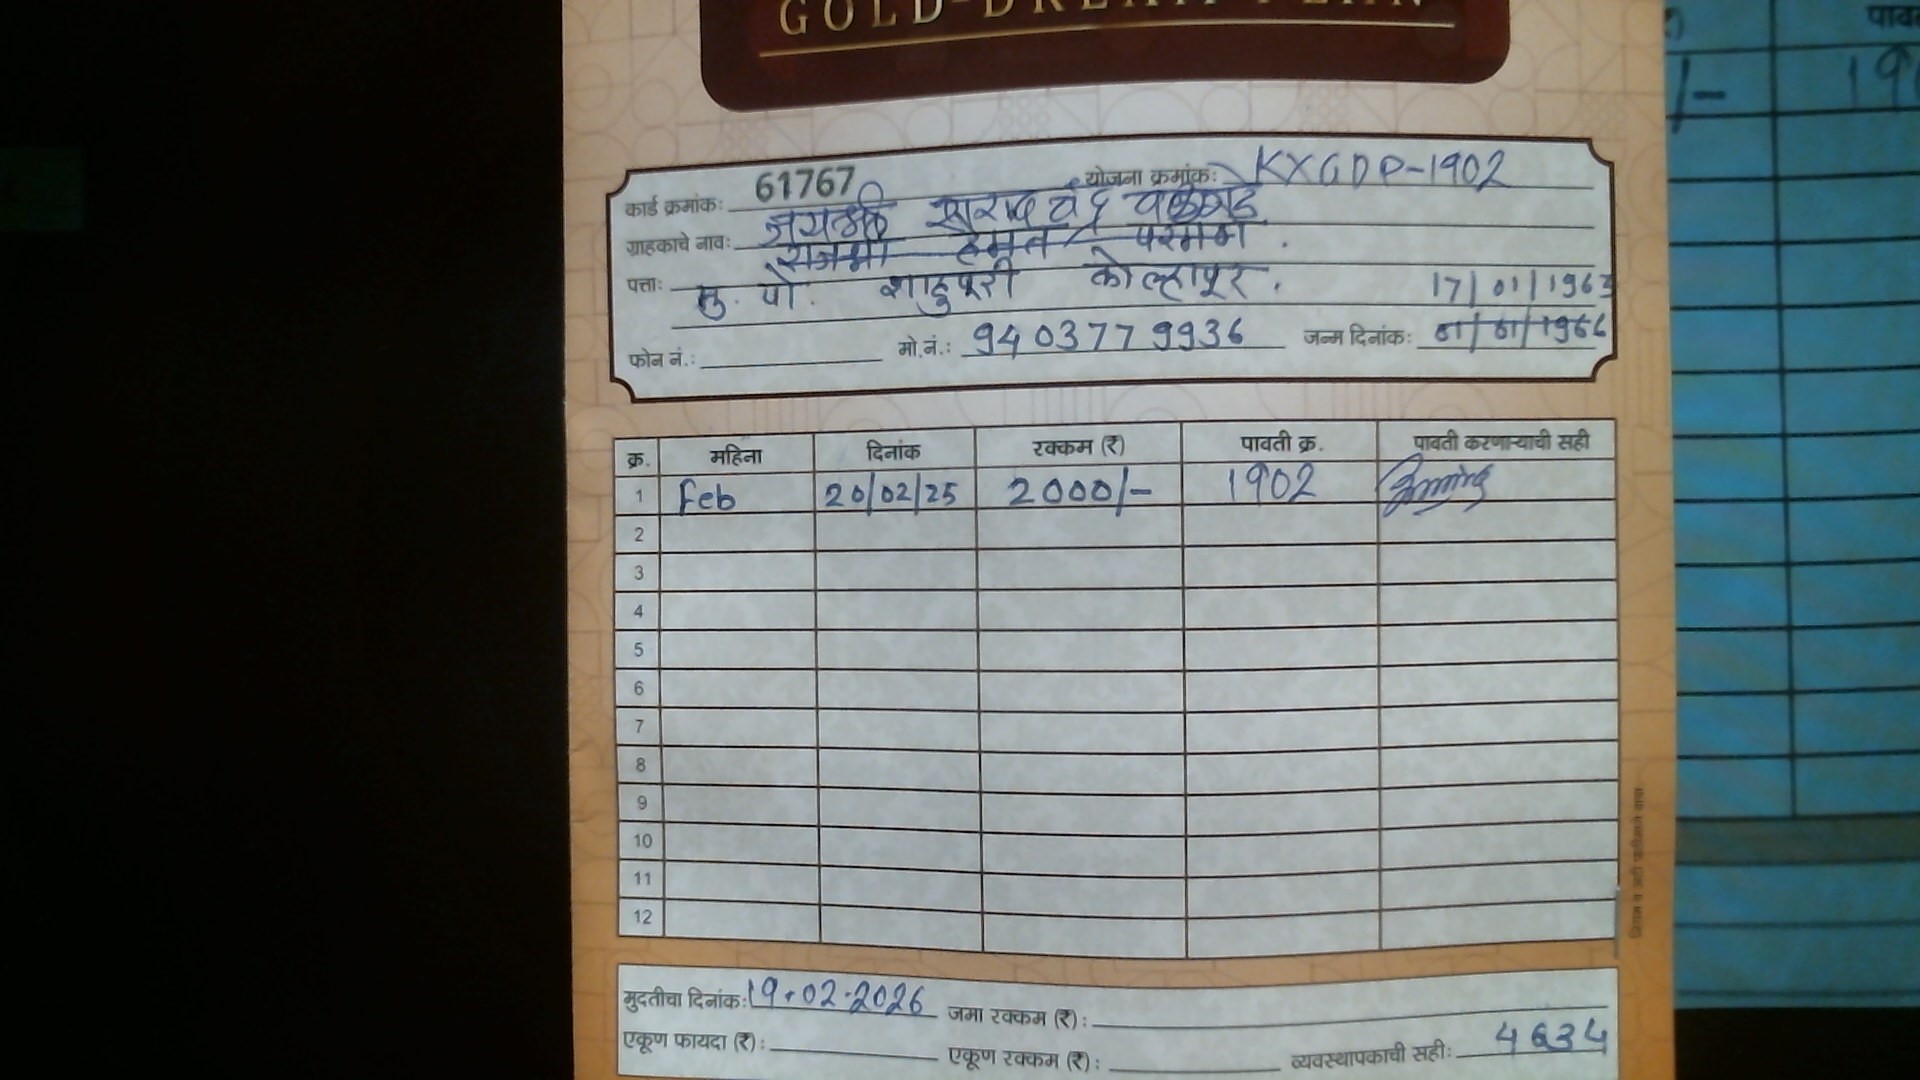 GOLD-DREAM PLAN
कार्ड क्रमांक: 61767 योजना क्रमांक: KXGDP-1902
ग्राहकाचे नाव: जयश्री शरदचंद्र
हेमंत
पत्ता: मु. पो. शाहुपूरी कोल्हापूर. 17/01/1963
फोन नं.: मो.नं.: 9403779936 जन्म दिनांक: 01/01/1966
क्र. महिना दिनांक रक्कम (₹) पावती क्र. पावती करणाऱ्याची सही
1 Feb 20/02/25 2000/- 1902
2
3
4
5
6
7
8
9
10
11
12
मुदतीचा दिनांक: 19.02.2026 जमा रक्कम (₹):
एकूण फायदा (₹): एकूण रक्कम (₹): व्यवस्थापकाची सही: 4634